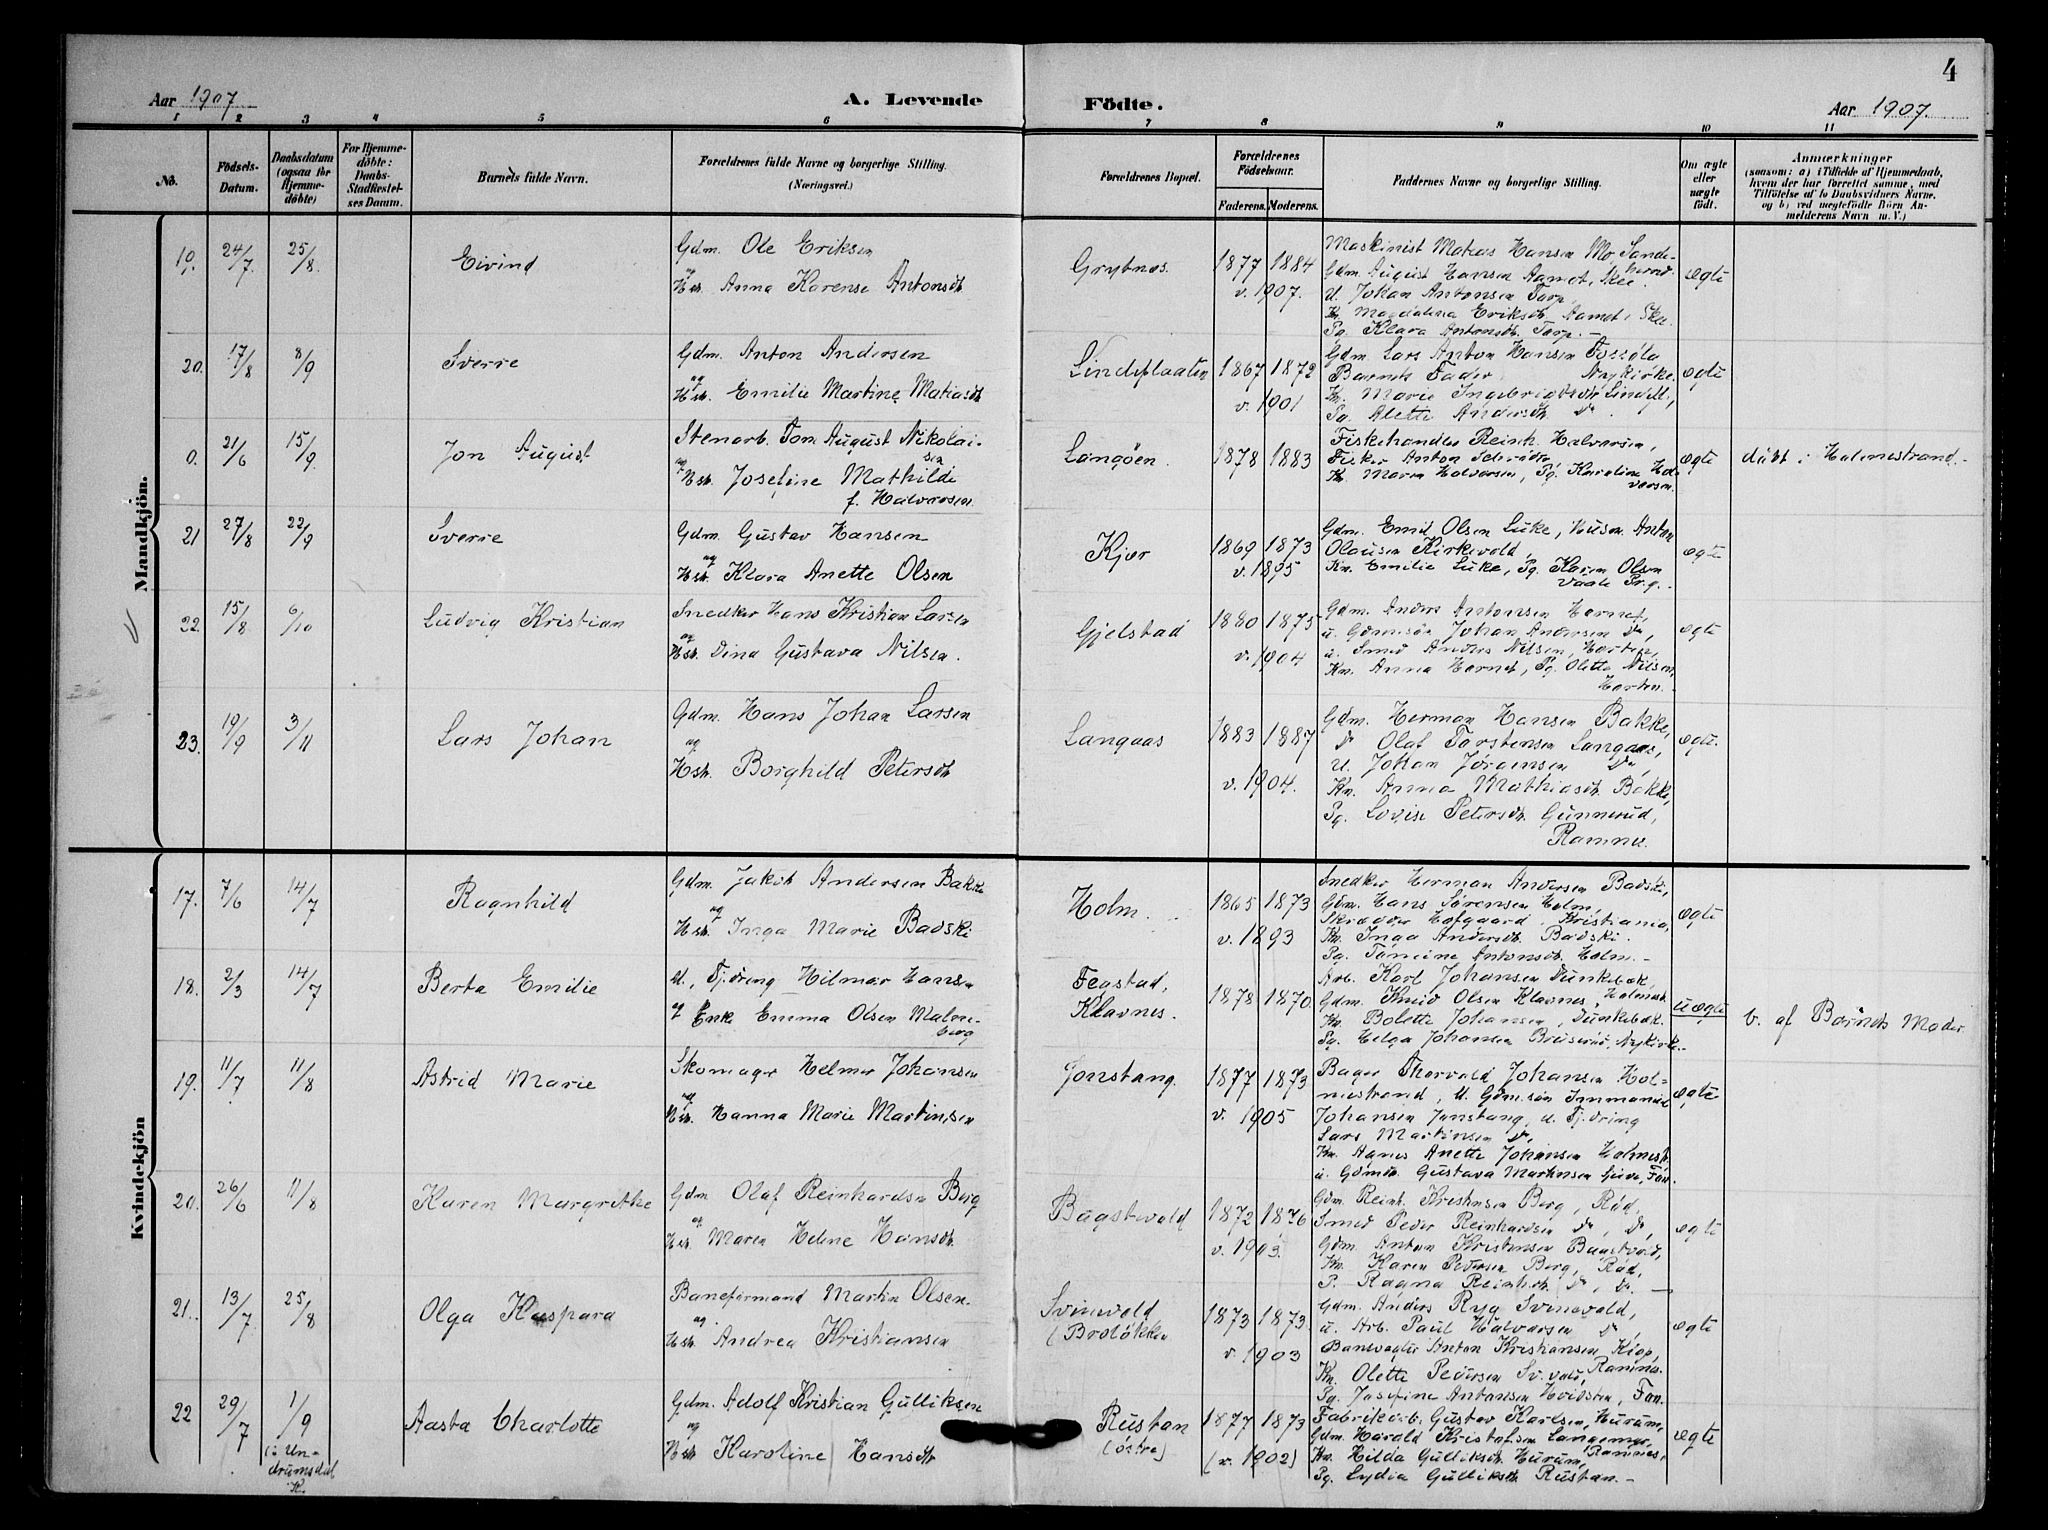 4
Aar 1907
A. Levende
Födte.
Aar 1907.
1 2 3 4 5 6 7 8 9 10 11
No.
Födsels-
Datum.
Daabsdatum
(ogsaa for
Hjemme-
döbte)
For Hjemme-
döbte:
Daabs-
Stadfæstel-
ses Datum.
Barnets fulde Navn.
Forældrenes fulde Navne og borgerlige Stilling.
(Næringsvei.)
Forældrenes Bopæl.
Forældrenes
Födselsaar.
Faderens. Moderens.
Faddernes Navne og borgerlige Stilling.
Om ægte
eller
uægte
födt.
Anmærkninger
(saasom: a) i Tilfælde af Hjemmedaab,
hvem der har forrettet samme, med
Tilföielse af to Daabsvidners Navne,
og b) ved uegtefödte Börn An-
melderens Navn m. V.)
Mandkjön.
19. 24/7 25/8 Eivind
Gdm. Ole Eriksen
og
Hst. Anna Karense Antonsdt.
Grytnes.
1877 1884
v. 1907.
Maskinist Matias Hansen Mo, Sande-
herred
Gdm. August Hansen Aamot, Skee.
U. Johan Antonsen Torp,
Kn. Magdalena Eriksdt. Aamot, Skee.
Pg. Klara Antonsdt. Torp. —
ægte
20. 17/8 8/9 Sverre
Gdm. Anton Andersen
og
Hst. Emilie Martine Matiasdt.
Lindeplaaten
1867 1872
v. 1901
Gdm. Lars Anton Hansen
Barnets Fader Nykirke.
Kn. Marie Ingebrigtsdt.
Pg. Alette Andersdt. Do.
ægte
0. 21/6 15/9 Jon August
Stenarb. Tom August Nikolai-
sen
og
Hst. Josefine Mathilde
f. Halvorsen.
Langöen.
1878 1883
Fiskehandler Reinh. Halvorsen,
Fisker Anton
Kn. Maren Halvorsen, Pg. Karoline Hal-
vorsen.
ægte
døbt i Holmestrand.
21 27/8 22/9 Sverre
Gdm. Gustav Hansen
og
Hst. Klara Anette Olsen
Kjær
1869 1873
v. 1895
Gdm. Emil Olsen Luke, Husm. Anton
Olausen Kirkevold,
Kn. Emilie Luke, Pg. Karen Olsen
Vaale Pr.g.
ægte
22. 15/8 6/10 Ludvig Kristian
Snedker Hans Kristian Larsen
og
Hst. Dina Gustava Nilsen.
Gjelstad
1880 1875
v. 1904
Gdm. Anders Antonsen Hornet,
u. Gdm.sön Johan Andersen Do,
u. Smed Anders Nilsen, Horten,
Kn. Anna Hornet, Pg. Olette Nilsen,
Horten.
ægte
23. 19/9 3/11 Lars Johan
Gdm. Hans Johan Larsen
og
Hst. Borghild Petersdt.
Langaas
1883 1887
v. 1904.
Gdm. Herman Hansen Bakke,
Do Olaf Torstensen Langaas,
U. Johan Jørgensen Do,
Kn. Anna Mathiasdt. Bakke,
Pg. Lovise Petersdt. Gunnerud,
Ramnes.
ægte.
Kvindekjön
17. 7/6 14/7 Ragnhild
Gdm. Jakob Andersen Bakke
og
Hst. Inga Marie Badski
Holm.
1865 1873
v. 1893
Snedker Herman Andersen Badski,
Gdm. Hans Sørensen Holm,
Skrædder Hofgaard, Kristiania,
Kn. Inga Andersdt. Badski.
Pg. Tomine Antonsdt. Holm. —
ægte
18. 2/3 14/7 Berta Emilie
U., Tj.dreng Hilmar Hansen
og Enke Emma Olsen Malm-
berg
Fegstad,
Klavnes.
1878 1870
Arb. Karl Johansen Dunkebæk,
Gdm. Knud Olsen Klavnes, Holmestr.
Kn. Bolette Johansen, Dunkebæk.
Pg. Helga Johansen Bruserud, Nykirke.
uægte
b. af Barnets Moder
19. 11/7 11/8 Astrid Marie
Skomager Helmer Johansen
og
Hst. Hanna Marie Martinsen
Jonstang.
1877 1873
v. 1905
Bager Thorvald Johansen Hol-
mestrand, U. Gdm.sön Immanuel
Johansen Jonstang, u. Tj.dreng
Lars Martinsen Do,
Kn. Agnes Anette Johansen Holmestr.
u. Gdmdt. Gustava Martinsen
ægte
20. 26/6 11/8 Karen Margrethe
Gdm Olaf Reinhardsen Berg
og
Hst. Maren Helene Hansdt.
Bagstvold
1872 1876
v. 1903.
Gdm. Reinh. Kristensen Berg, Röd,
Smed Peder Reinhardsen Do, Do,
Gdm. Anton Kristensen Bagstvold,
Kn. Karen Pedersen Berg, Röd,
P. Ragna Reinhdt. Do, Do. —
ægte
21. 13/7 25/8 Olga Kaspara
Baneformand Martin Olsen
og
Hst. Andrea Kristiansen
Svinevold
(Broløkken
1873 1873
v. 1903
Gdm. Anders Ryg Svinevold,
u. Arb. Paul Halvorsen Do,
Banevogter Anton Kristiansen Kjop,
Ramnes.
Kn. Olette Pedersen Sv.vold,
Pg. Josefine Antonsen Hvidsten, Fon.
ægte
22 29/7 1/9
(i Un-
drumsdal
K.
Aasta Charlotte
Gdm. Adolf Kristian Gulliksen
og
Hst. Karoline Hansdt.
Rustan
(østre)
1877 1873
(v. 1902)
Fabrikarb. Gustav Karlsen, Hurum,
Gdm. Harald Kristofsen Langemyr,
Ramnes,
Kn. Hilda Gulliksdt. Hurum,
Pg. Lydia Gulliksdt. Rustan. —
ægte